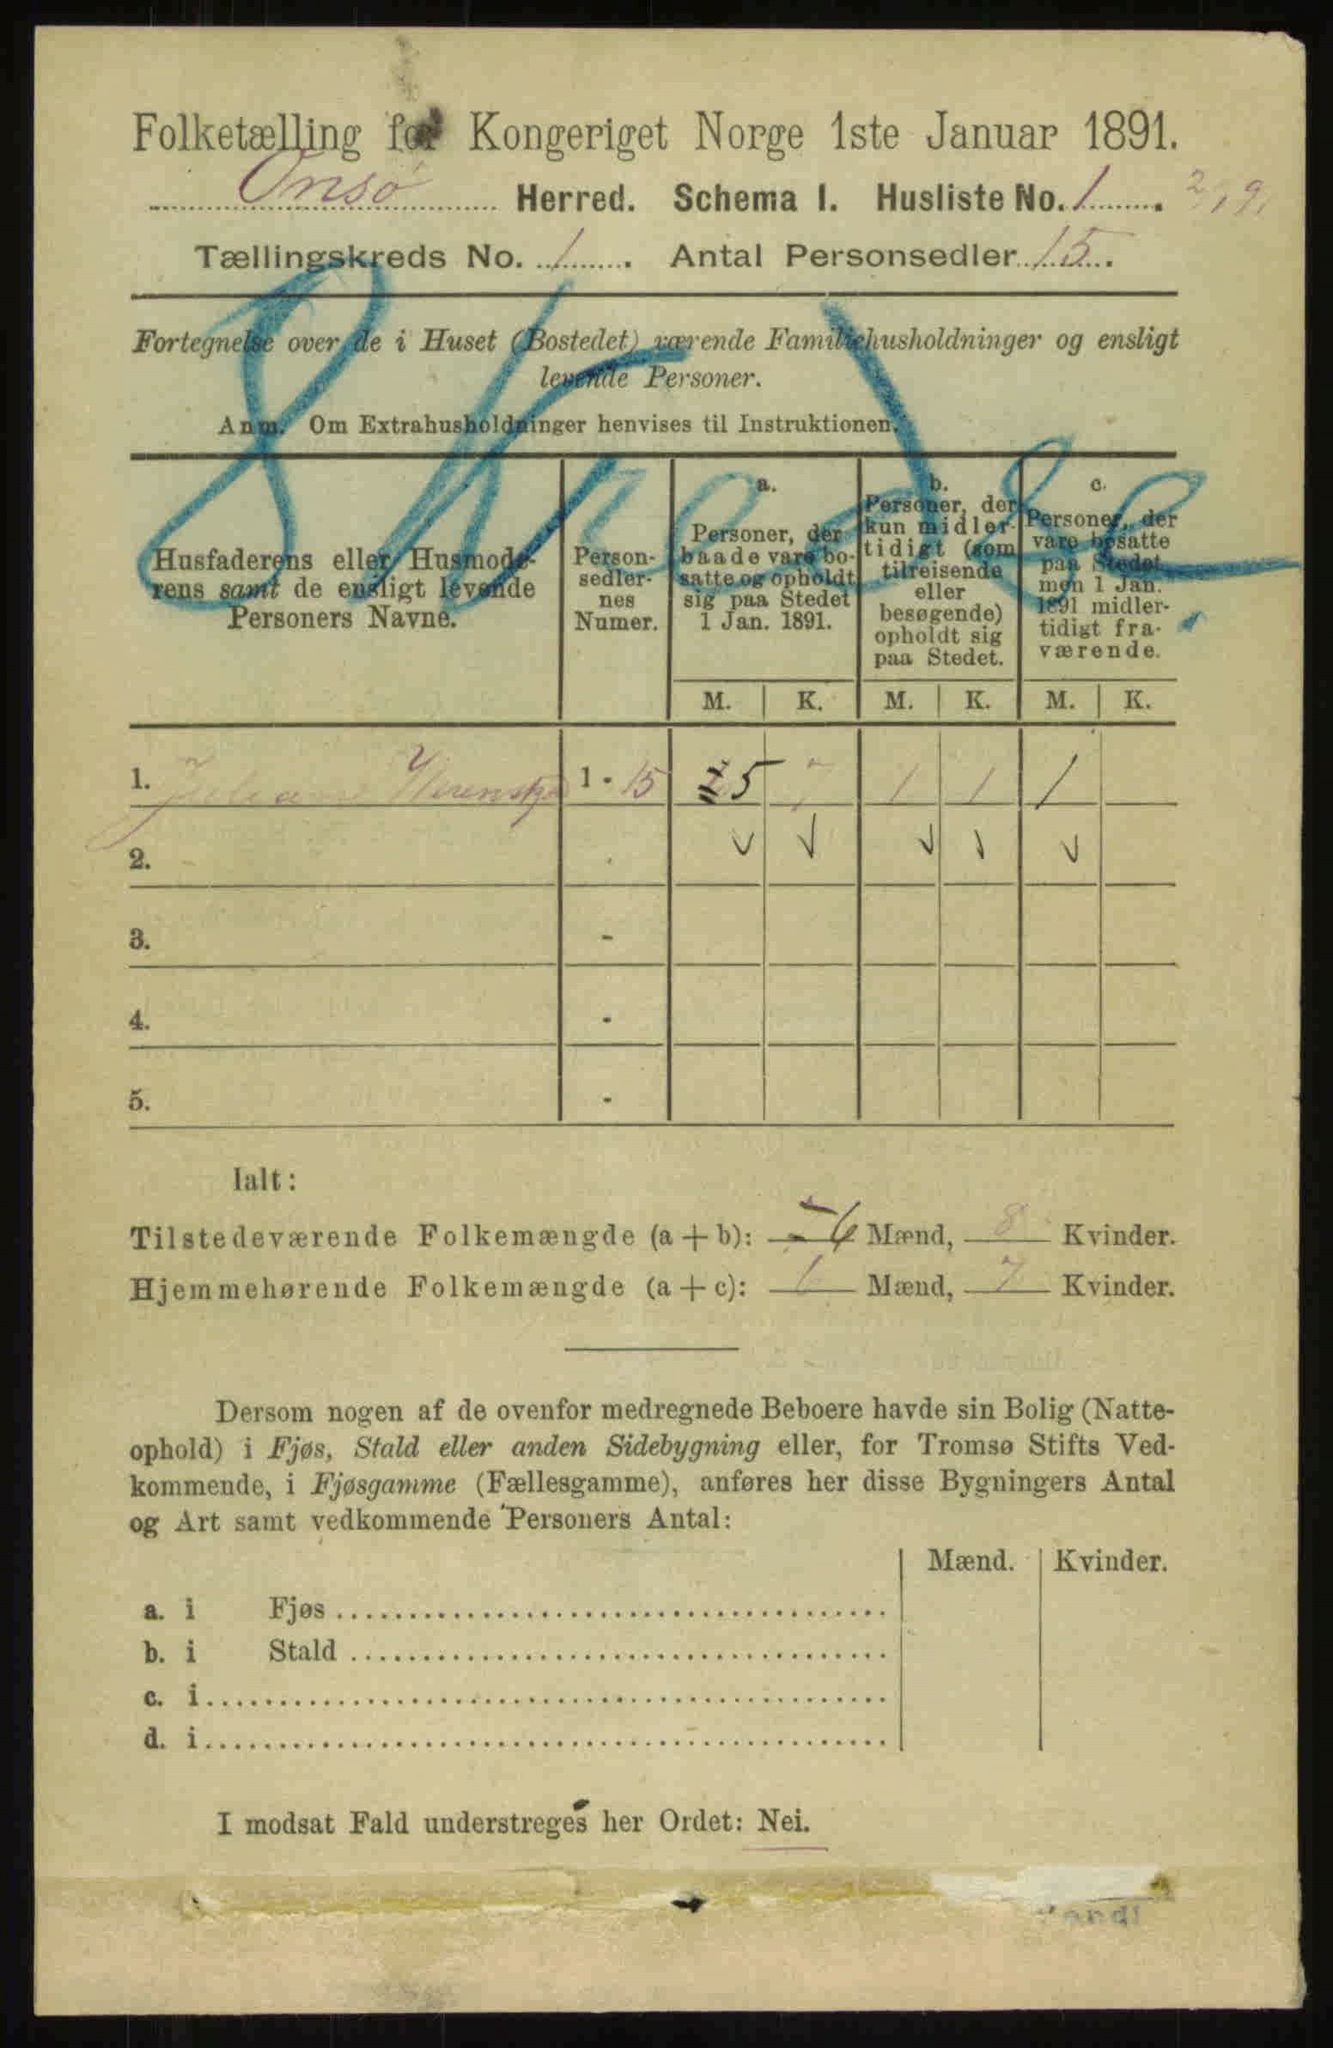 Folketælling for Kongeriget Norge 1ste Januar 1891.
Onsø Herred. Schema I. Husliste No. 1.
Tællingskreds No. 1. Antal Personsedler 15.
Fortegnelse over de i Huset (Bostedet) værende Familiehusholdninger og ensligt
levende Personer.
Anm. Om Extrahusholdninger henvises til Instruktionen.
Husfaderens eller Husmode-
rens samt de ensligt levende
Personers Navne.
Person-
sedler-
nes
Numer.
a.
Personer, der
baade vare bo-
satte og opholdt
sig paa Stedet
1 Jan. 1891.
b.
Personer, der
kun midler-
tidigt (som
tilreisende
eller
besøgende)
opholdt sig
paa Stedet.
c.
Personer, der
vare bosatte
paa Stedet,
men 1 Jan.
1891 midler-
tidigt fra-
værende.
M. K. M. K. M. K.
1. 1 - 15 5 7 1 1 1
2.
3. -
4. -
5. -
Ialt:
Tilstedeværende Folkemængde (a + b): 6 Mænd, 8 Kvinder.
Hjemmehørende Folkemængde (a + c): 6 Mænd, 7 Kvinder.
Dersom nogen af de ovenfor medregnede Beboere havde sin Bolig (Natte-
ophold) i Fjøs, Stald eller anden Sidebygning eller, for Tromsø Stifts Ved-
kommende, i Fjøsgamme (Fællesgamme), anføres her disse Bygningers Antal
og Art samt vedkommende Personers Antal:
Mænd. Kvinder.
a. i Fjøs
b. i Stald
c. i
d. i
I modsat Fald understreges her Ordet: Nei.